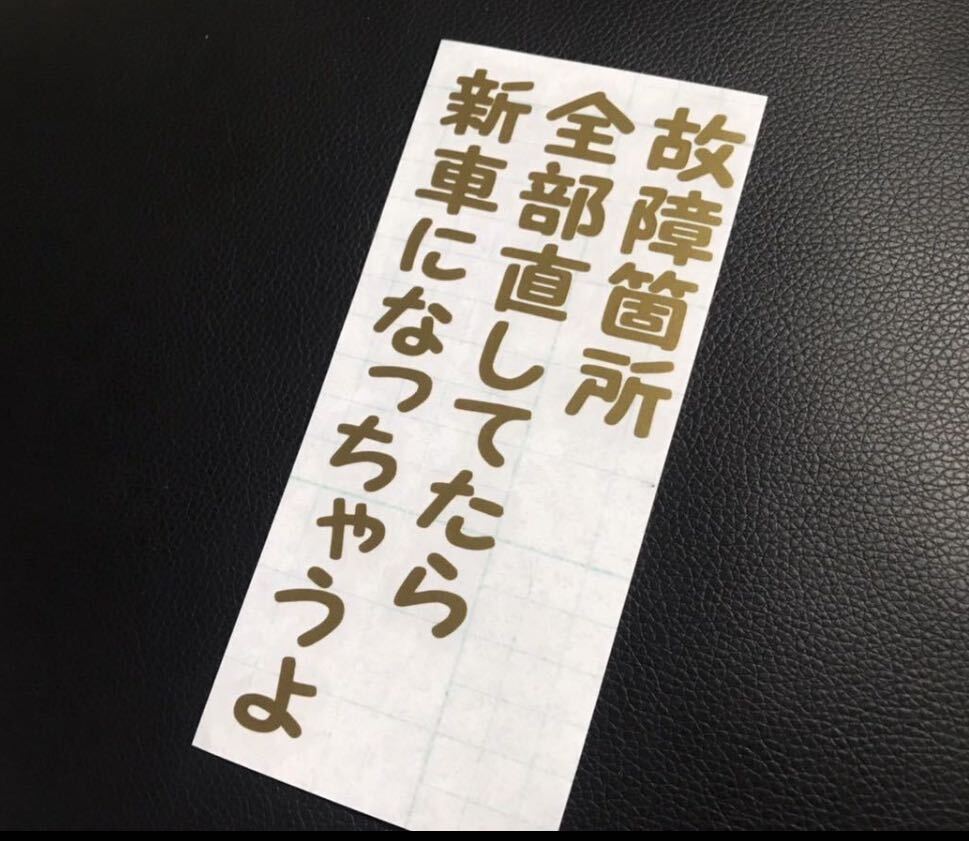 故障箇所
全部直してたら
新車になっちゃうよ